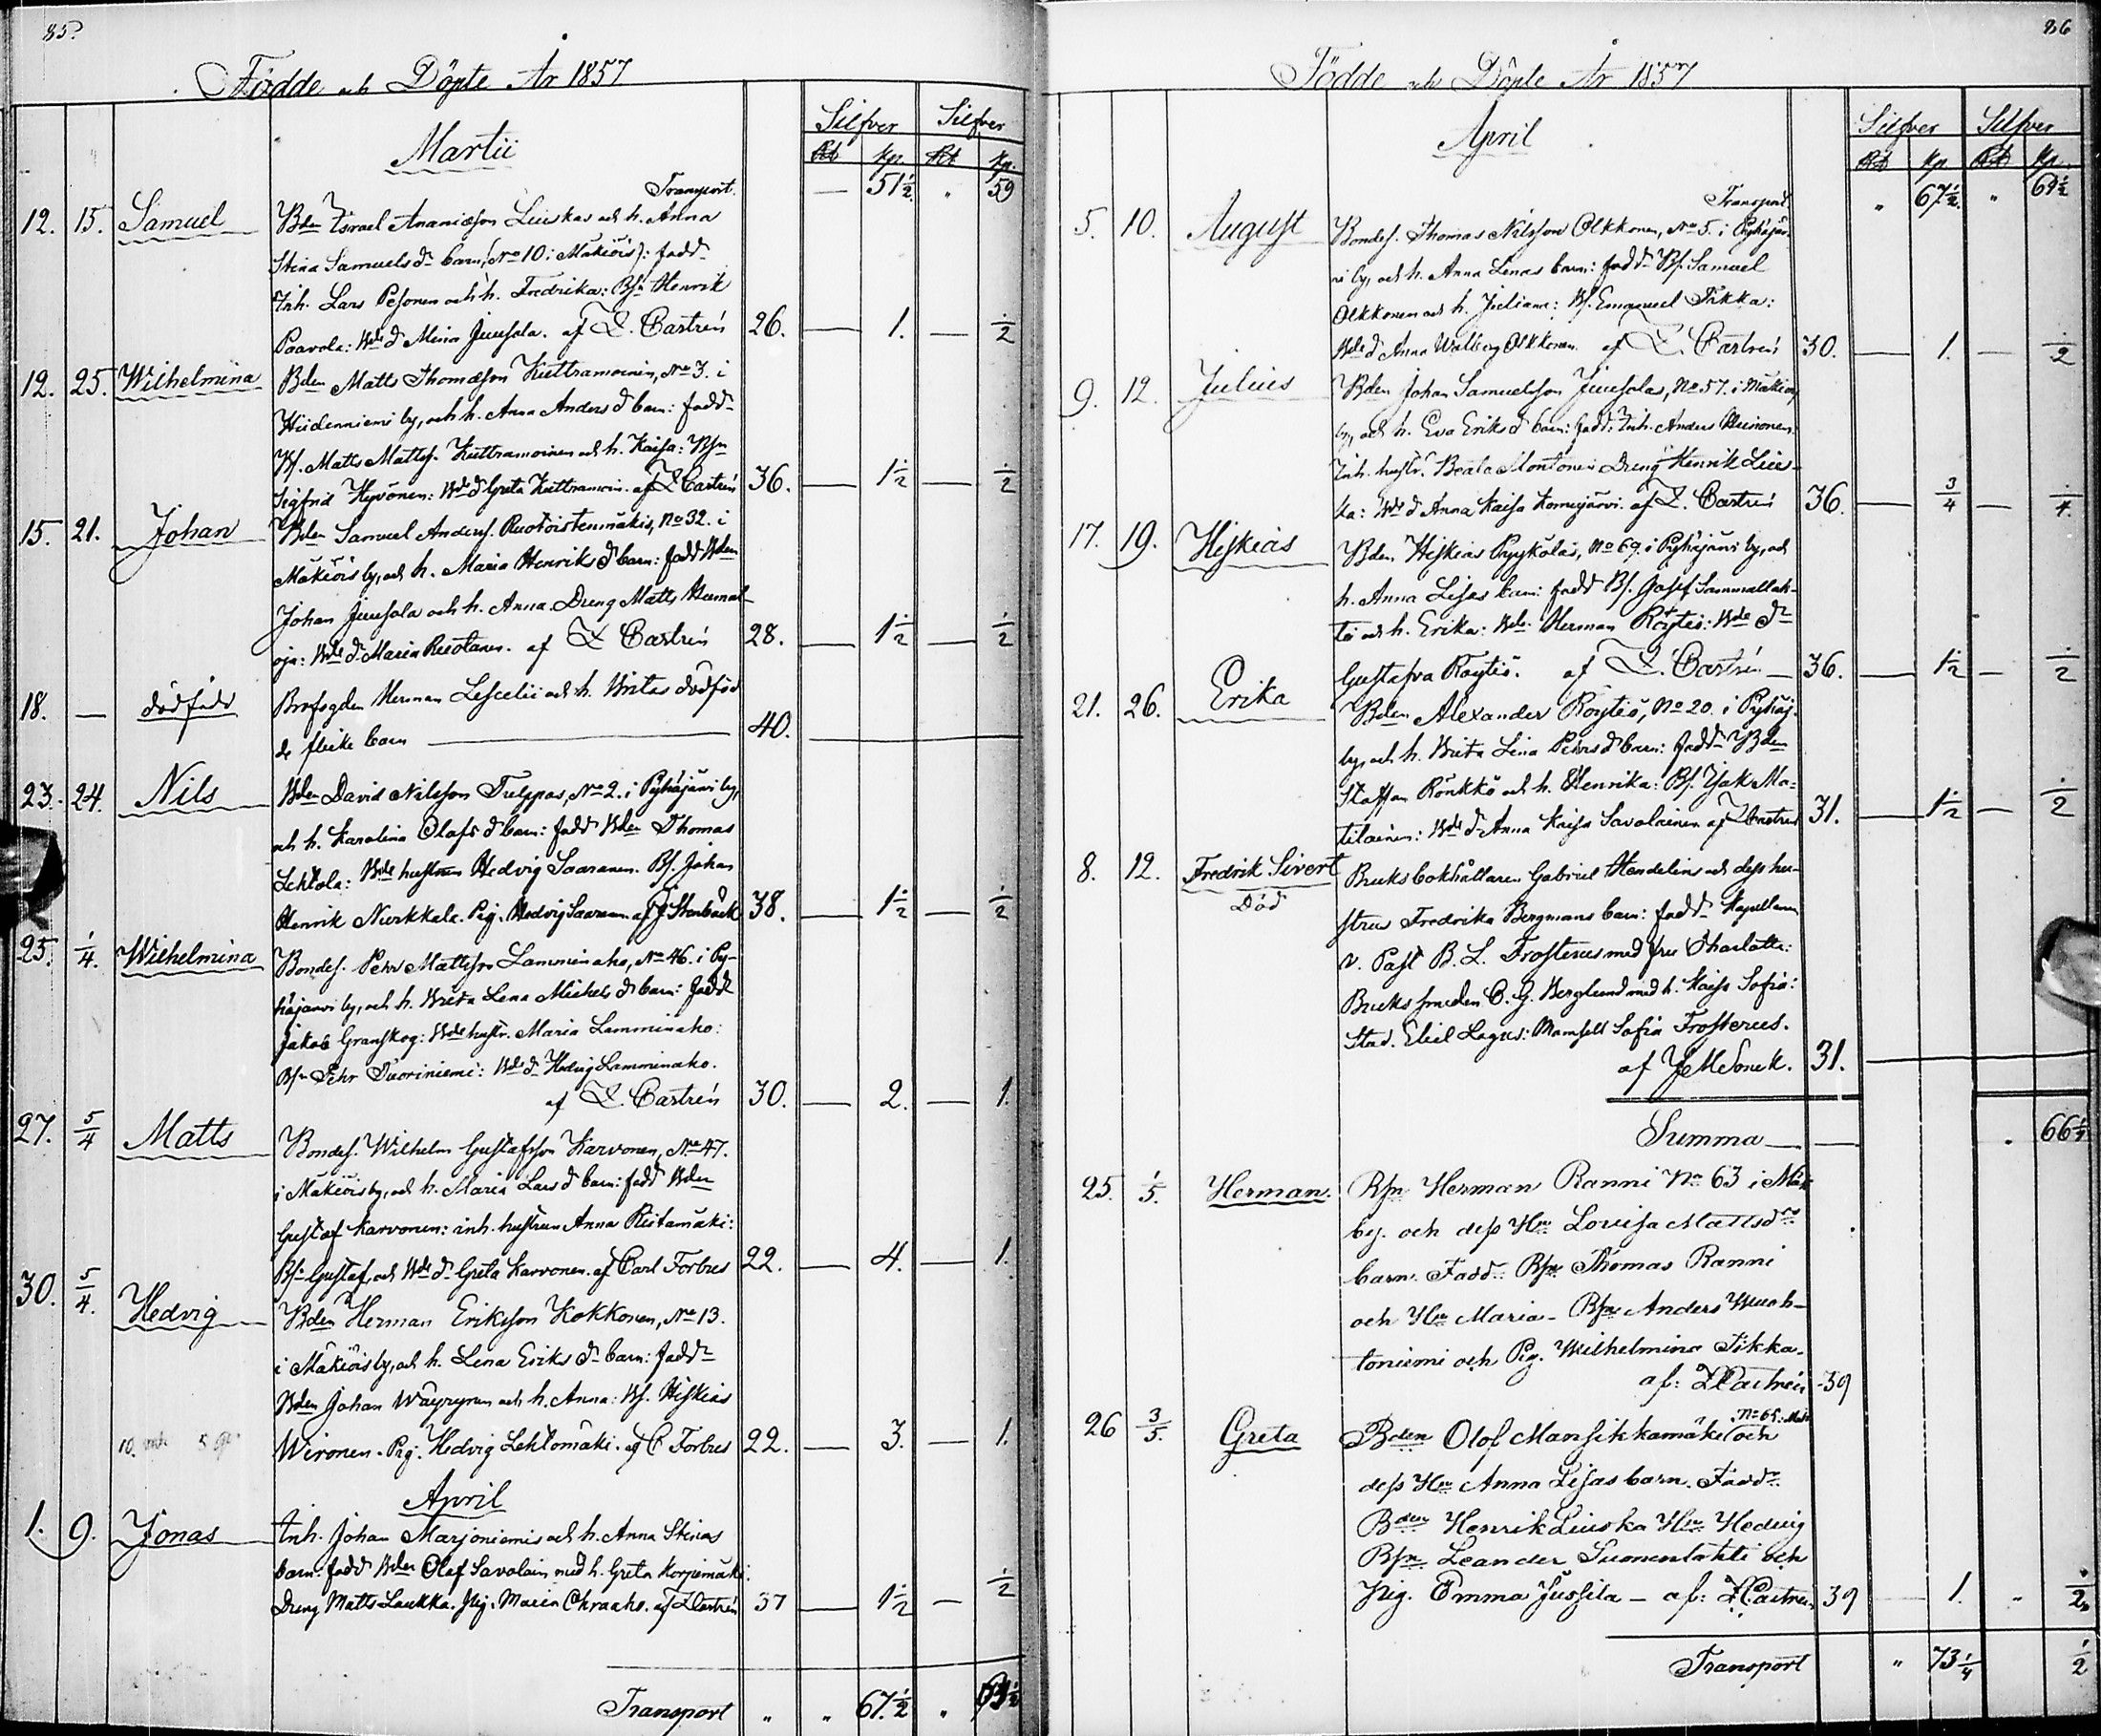 85.
Födde och Döpte År 1857
Silfver Silfver
Martii
Rb kp. Rb kp.
Transport. — 51 1/2. " 59
12. 15. Samuel Bden Israel Ananiæson Liuskas och h. Anna
Stina Samuels dr barn, (No 10 i Mäkiöis): fadd
Inh. Lars Pesonen och h. Fredrika: Bsn Henrik
Paavola: Bde d Mina Juusola. af Z. Castrén 26. — 1. — 1/2
12. 25. Wilhelmina Bden Matts Thomæson Kuttramoinen, No 3. i
Hiidenniemi by, och h. Anna Anders d barn: fadd
Bs. Matts Mattss. Kuttramoinen och h. Kaisa: Bsn
Sigfrid Hyvönen: Bde d Greta Kuttramoin. af Z Castrén 36. — 1 1/2 — 1/2
15. 21. Johan Bden Samuel Anderss. Ruotoistenmäkis, No 32. i
Mäkiöis by, och h. Maria Henriks d barn: fadd Bden
Johan Juusola och h. Anna. Dreng Matts
oja: Bde d Maria Ruotanen. af Z Castrén 28. — 1 1/2 — 1/2
18. — dödfödd Brofogden Herman Lescelii och h. Britas dödföd
de flicke barn — 40.
23. 24. Nils Bden David Nilsson Tulppos, No 2. i Pyhäjärvi by,
och h. Karolina Olofs d barn: fadd Bden Thomas
Lehtola: Bde hustrun Hedvig Saaranen. Bs. Johan
Henrik Nurkkala. Pig. Hedvig Saaranen. af J Stenbäck 38. — 1 1/2 — 1/2
25. 1/4. Wilhelmina Bondes. Pehr Mattsson Lamminaho, No 46. i Py-
häjärvi by, och h. Brita Lena Michels d barn: fadd
Jakob Granskog: Bde hustr. Maria Lamminaho:
Bsn Pehr Tuoriniemi: Bde d Hedvig Lamminaho.
af Z. Castrén 30. — 2. — 1.
27. 5/4 Matts Bondes. Wilhelm Gustafsson Karvonen, No 47.
i Mäkiöis by, och h. Maria Lars d barn: fadd Bden
Gustaf Karvonen: inh. hustrun Anna Ristamäki:
Bsn Gustaf och Bde d Greta Karvonen. af Carl Forbus 22. — 4. — 1.
30. 5/4. Hedvig Bden Herman Eriksson Kokkonen, No 13.
i Mäkiöis by, och h. Lena Eriks d barn: fadd
Bden Johan Wäyrynen och h. Anna: Bs. Hiskias
Wironen. Pig. Hedvig Lehtomäki. af C Forbus 22. — 3. — 1.
April
1. 9. Jonas Inh. Johan Marjoniemis och h. Anna Stinas
barn: fadd Bden Olof Savolain med h. Greta Korpimäki.
Dreng Matts Laukka. Pig. Maria Okraaho. af Z Castrén 37 — 1 1/2 — 1/2
Transport " " 67. 1/2 "
86
Födde och Döpte År 1857
Silfver Silfver
April
Rb kp Rb kp.
Transport " 67 1/2. " 69 1/2
5. 10. August Bondes. Thomas Nilsson Olkkonen, No 5. i Pyhäjär-
vi by, och h. Anna Lenas barn: fadd Bs. Samuel
Olkkonen och h. Juliana: Bs. Emanuel Tikka:
Bde d Anna Walborg Olkkonen. af Z. Castrén 30. — 1. — 1/2
9. 12. Julius Bden Johan Samuelsson Juusolas, No 57. i Mäkiöis
by, och h. Eva Eriks d barn: fadd: Inh. Anders
Inh. hustr. Beata Montonen Dreng Henrik Lius-
ka: Bde d Anna Kaisa Komujärvi. af Z. Castrén 36. — 3/4 — 1/4.
17. 19. Hiskias Bden Hiskias Pyykölas, No 69. i Pyhäjärvi by, och
h. Anna Lisas barn: fadd Bs. Josef Sammallah-
ti och h. Erika: Bde. Herman Röytiö: Bde d
Gustafva Röytiö. af Z. Castrén — 36. — 1 1/2 — 1/2
21. 26. Erika Bden Alexander Röytiö, No 20. i Pyhäj.
by, och h. Brita Lina Pehrs d barn: fadd Bden
Staffan Rönkkö och h. Henrika: Bs. Isak Ma-
tilainen: Bde d Anna Kaisa Savolainen af Z Castrén 31. — 1 1/2 — 1/2
8. 12. Fredrik Sivert Bruksbokhållaren Gabriel Handelins och dess hu-
Död
strus Fredrika Bergmans barn: fadd Kapellanen
v. Past B. L. Frosterus med fru Charlotta:
Bruks smeden C. G. Berglund med h. Kaisa Sofia:
Stud. Eliel Lagus: Mamsell Sofia Frosterus.
af J M Sonck. 31.
Summa — . 66 1/4
25. 1/5. Herman. Bsn Herman Ranni No 63 i Mäk
by. och dess Hu Lovisa Mattsdrs
barn. Fadd: Bsn Thomas Ranni
och Hu Maria - Bsn Anders Wuoh-
toniemi och Pig. Wilhelmina Tikka-
af: Z Castrén 39
26 3/5. Greta Bden Olof Mansikkamäki No 65. Mäk och
dess Hu Anna Lisas barn. Fadd
Bden Henrik Liuska Hu Hedvig
Bsn Leander Suomenlahti och
Pig. Emma Jussila - af: Z Castrén 39 — 1. " 1/2
Transport " 73 1/4 1/2